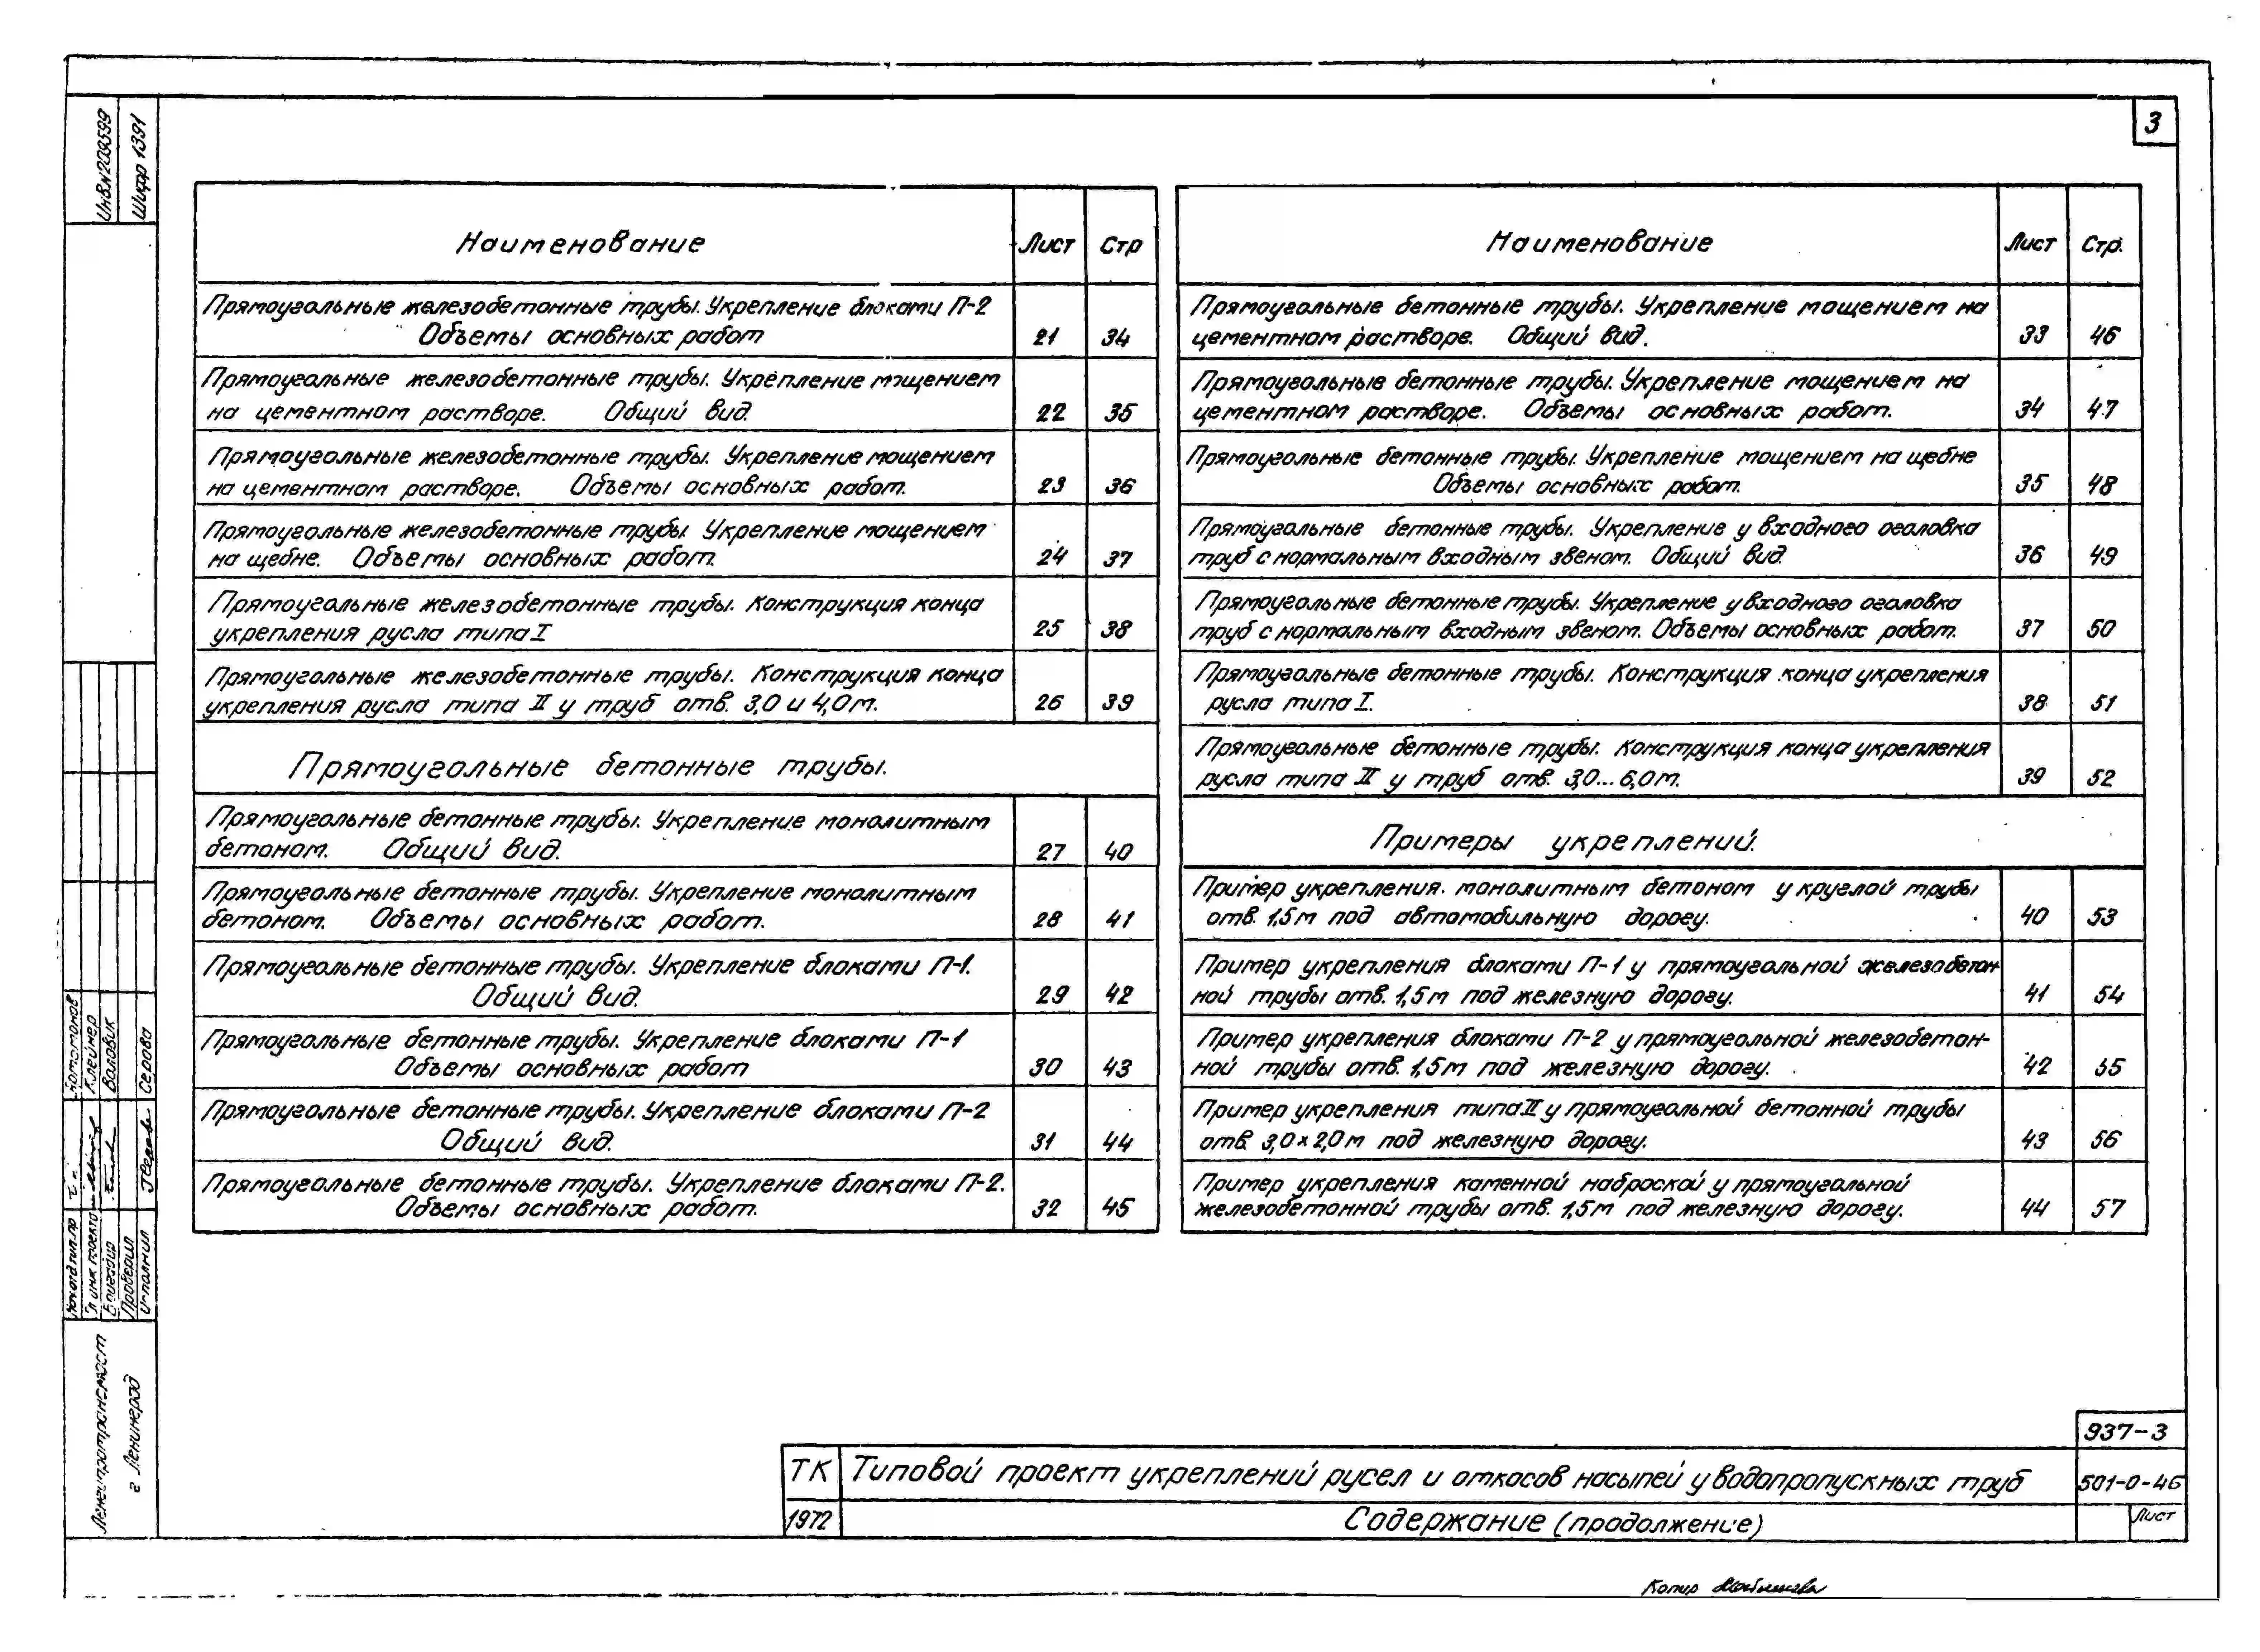 3
Инв.№209599
Шифр 1391
Наименование Лист Стр
Прямоугольные железобетонные трубы. Укрепление блоками П-2
Объемы основных работ 21 34
Прямоугольные железобетонные трубы. Укрепление мощением
на цементном растворе. Общий вид. 22 35
Прямоугольные железобетонные трубы. Укрепление мощением
на цементном растворе. Объемы основных работ. 23 36
Прямоугольные железобетонные трубы. Укрепление мощением
на щебне. Объемы основных работ. 24 37
Прямоугольные железобетонные трубы. Конструкция конца
укрепления русла типа I 25 38
Прямоугольные железобетонные трубы. Конструкция конца
укрепления русла типа II у труб отв. 3,0 и 4,0м. 26 39
Прямоугольные бетонные трубы.
Прямоугольные бетонные трубы. Укрепление монолитным
бетоном. Общий вид. 27 40
Прямоугольные бетонные трубы. Укрепление монолитным
бетоном. Объемы основных работ. 28 41
Прямоугольные бетонные трубы. Укрепление блоками П-1.
Общий вид. 29 42
Прямоугольные бетонные трубы. Укрепление блоками П-1
Объемы основных работ 30 43
Прямоугольные бетонные трубы. Укрепление блоками П-2
Общий вид. 31 44
Прямоугольные бетонные трубы. Укрепление блоками П-2.
Объемы основных работ. 32 45
Наименование Лист Стр.
Прямоугольные бетонные трубы. Укрепление мощением на
цементном растворе. Общий вид. 33 46
Прямоугольные бетонные трубы. Укрепление мощением на
цементном растворе. Объемы основных работ. 34 47
Прямоугольные бетонные трубы. Укрепление мощением на щебне
Объемы основных работ. 35 48
Прямоугольные бетонные трубы. Укрепление у входного оголовка
труб с нормальным входным звеном. Общий вид. 36 49
Прямоугольные бетонные трубы. Укрепление у входного оголовка
труб с нормальным входным звеном. Объемы основных работ. 37 50
Прямоугольные бетонные трубы. Конструкция конца укрепления
русла типа I. 38 51
Прямоугольные бетонные трубы. Конструкция конца укрепления
русла типа II у труб отв. 3,0...6,0м. 39 52
Примеры укреплений.
Пример укрепления монолитным бетоном у круглой трубы
отв. 1,5м под автомобильную дорогу. 40 53
Пример укрепления блоками П-1 у прямоугольной железобетон-
ной трубы отв. 1,5м под железную дорогу. 41 54
Пример укрепления блоками П-2 у прямоугольной железобетон-
ной трубы отв. 1,5м под железную дорогу. 42 55
Пример укрепления типа II у прямоугольной бетонной трубы
отв. 3,0х2,0м под железную дорогу. 43 56
Пример укрепления каменной наброской у прямоугольной
железобетонной трубы отв. 1,5м под железную дорогу. 44 57
Клейнер
Валовик
Серова
Бригадир
Проверил
Исполнил
Ленгипротрансмост
г Ленинград
937-3
ТК Типовой проект укреплений русел и откосов насыпей у водопропускных труб 501-0-46
1972 Содержание (продолжение) Лист
Копир